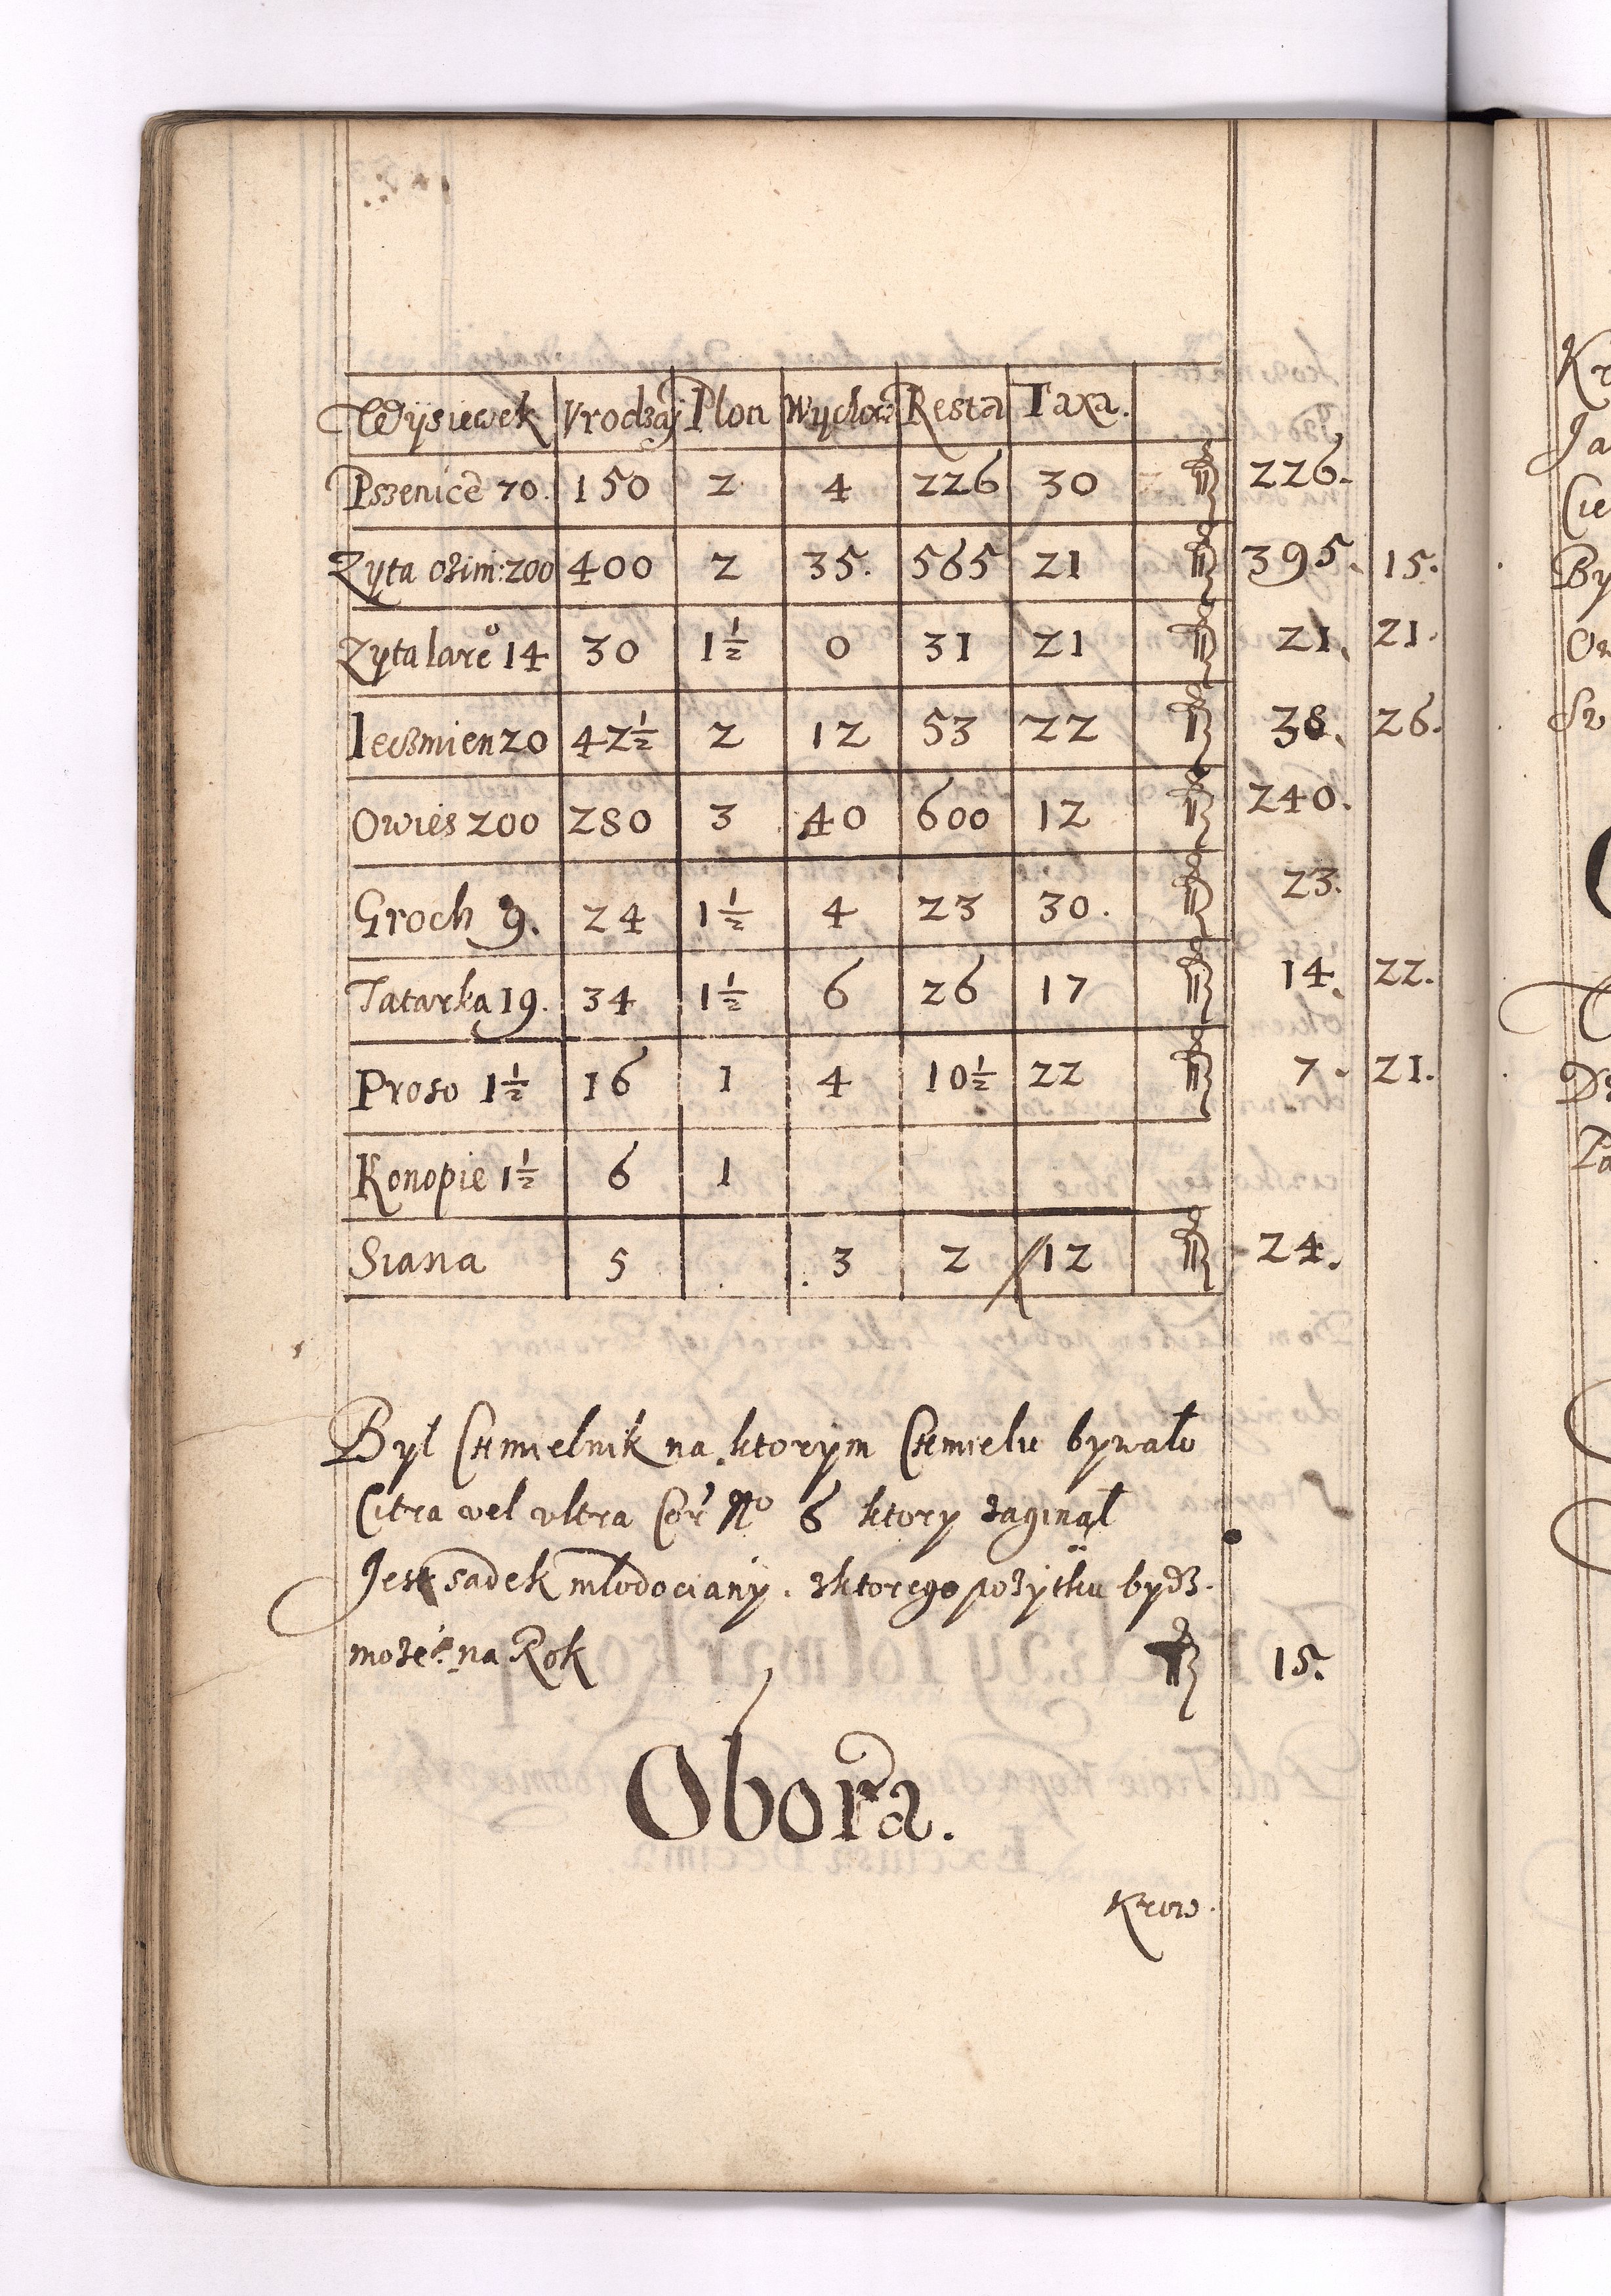 Wysiewek Vrodzaj Plon Wychod Resta Taxa.
Pszenice 70. 150 2 4 226 30 fl 226.
Zyta ozim: 200 400 2 35. 565 21 fl 395. 15.
Zyta Iareo 14 30 1½ 0 31 21 fl 21. 21.
Ieczmien 20 42½ 2 12 53 22 fl 38. 26.
Owies 200 280 3 40 600 12 fl 240.
Groch 9. 24 1½ 4 23 30. fl 23.
Tatarka 19. 34 1½ 6 26 17 fl 14. 22.
Proso 1½ 16 1 4 10½ 22 fl 7. 21.
Konopie 1½ 6 1
Siana 5 3 2 12 fl 24.
Był Chmielnik na ktorym Chmielu bywało
Citra vel vltra Cor No 6 ktory zaginął
Jest sadek młodociany. zktorego pożytku bydz.
może na Rok fl 15.
Obora.
Krow.